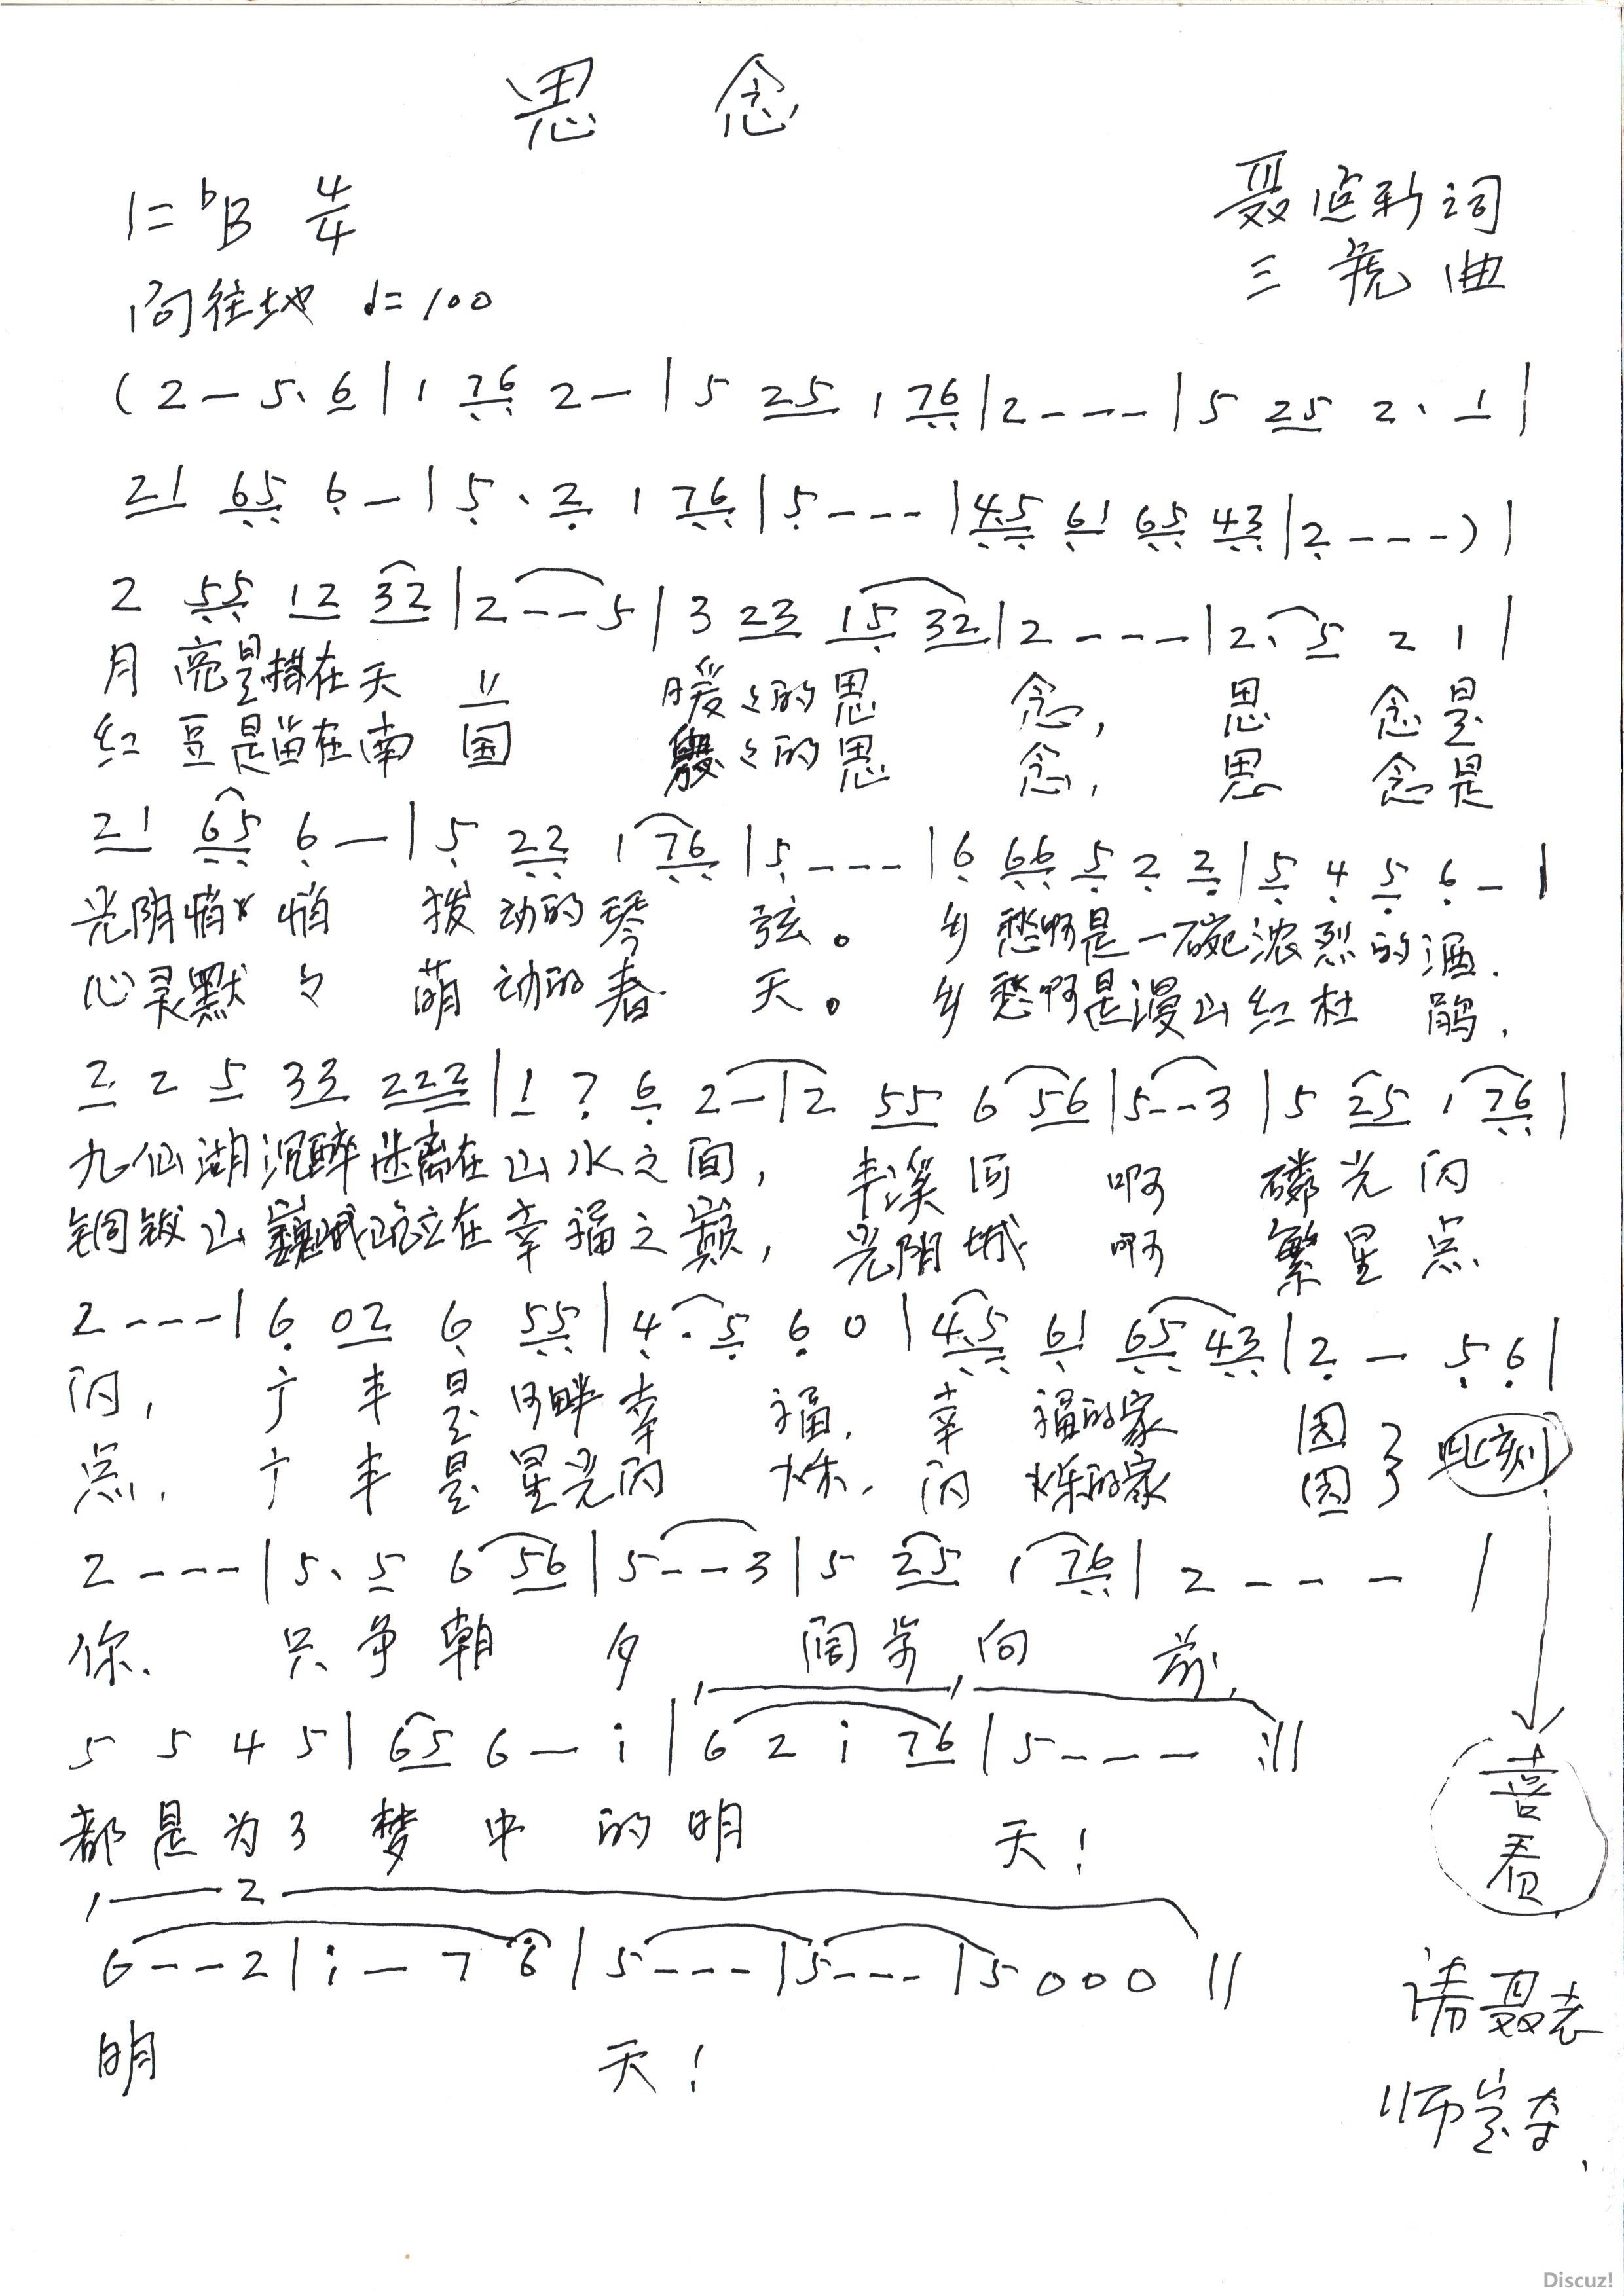 思 念
1=ᵇB 4/4
聂 新词
三 虎 曲
向往地 ♩=100
(2 — 5· 6 | 1 76 2 — | 5 25 1 76 | 2 - - - | 5 25 2 · 1 |
21 65 6 — | 5 · 2 1 76 | 5 - - - | 45 61 65 43 | 2 - - -) |
2 55 12 32 | 2 - - 5 | 3 23 15 32 | 2 - - - | 2· 5 2 1 |
月亮是挂在天上 暖々的思念, 思念是
红豆是留在南国 的思念, 思念是
21 65 6 — | 5 22 1 76 | 5 - - - | 6 66 5 2 2 | 5 4 5 6 - |
光阴悄々悄 拨动的琴弦。 乡愁啊是一碗浓烈的酒.
心灵默々 萌动的春天。 乡愁啊是漫山红杜鹃,
2 2 5 33 222 | 1 7 6 2 — | 2 55 6 56 | 5 - - 3 | 5 25 1 76 |
九仙湖沉醉迷离在山水之间, 丰溪河啊 磷光闪
铜钹山巍峨屹立在幸福之巅, 光阴城啊 繁星点
2 - - - | 6 02 6 55 | 4 · 5 6 0 | 45 61 65 43 | 2 — 5 6 |
闪, 广丰是河畔幸福, 幸福的家 因了此刻
点. 广丰是星光闪烁, 闪烁的家 因了
2 - - - | 5 · 5 6 56 | 5 - - 3 | 5 25 1 76 | 2 - - - |
你、 只争朝夕 阔步向前,
5 5 4 5 | 65 6 — i | 6 2 i 76 | 5 - - - :||
喜看
都是为了梦中的明天!
2
6 - - 2 | i — 7 6 | 5 - - - | 5 - - - | 5 0 0 0 ||
明 天!
请聂老
师定夺.
Discuz!